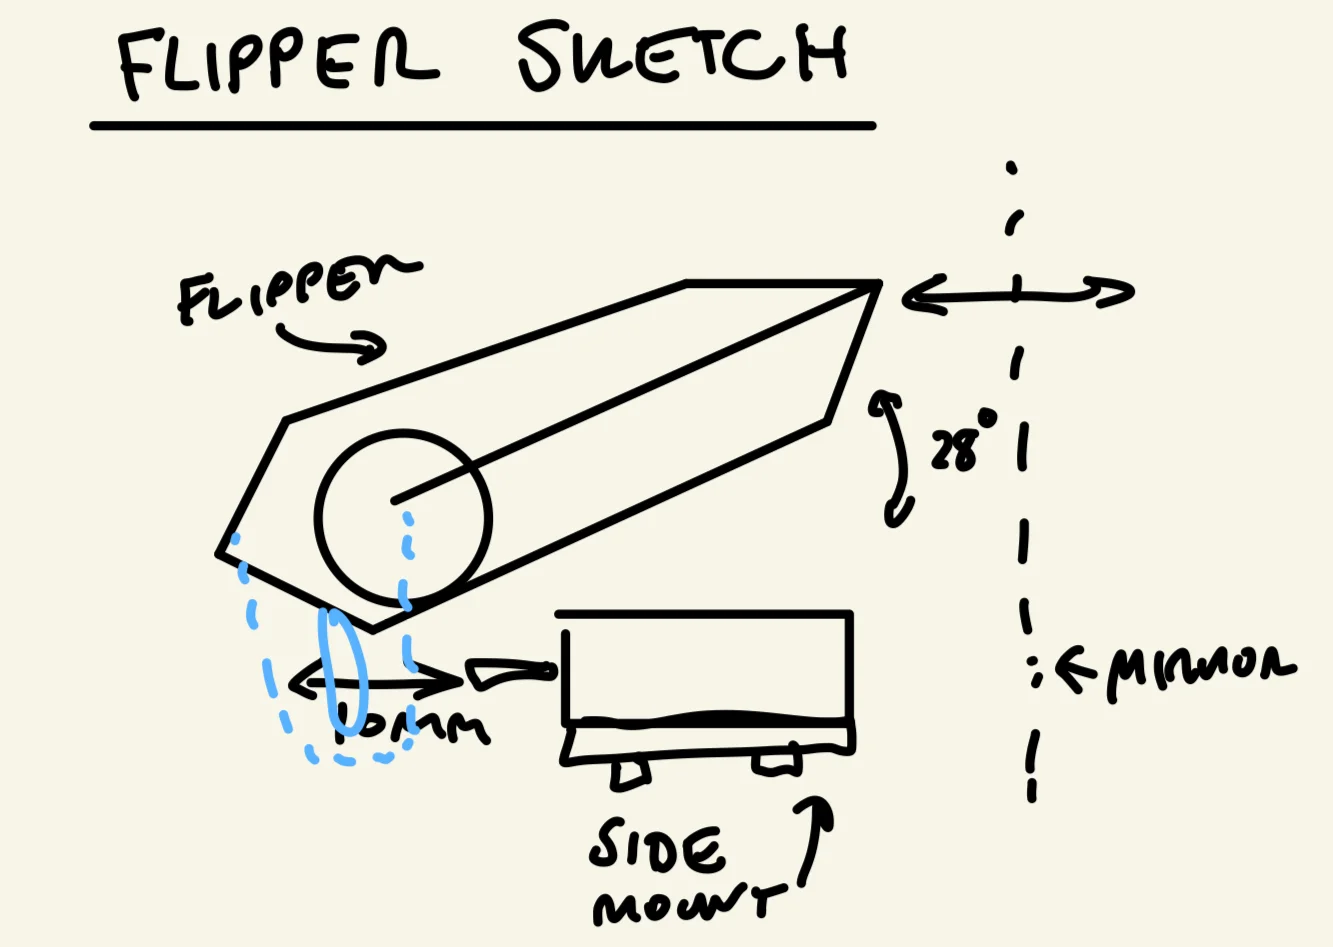 FLIPPER SKETCH
FLIPPER
28°
MIRROR
10MM
SIDE
MOUNT